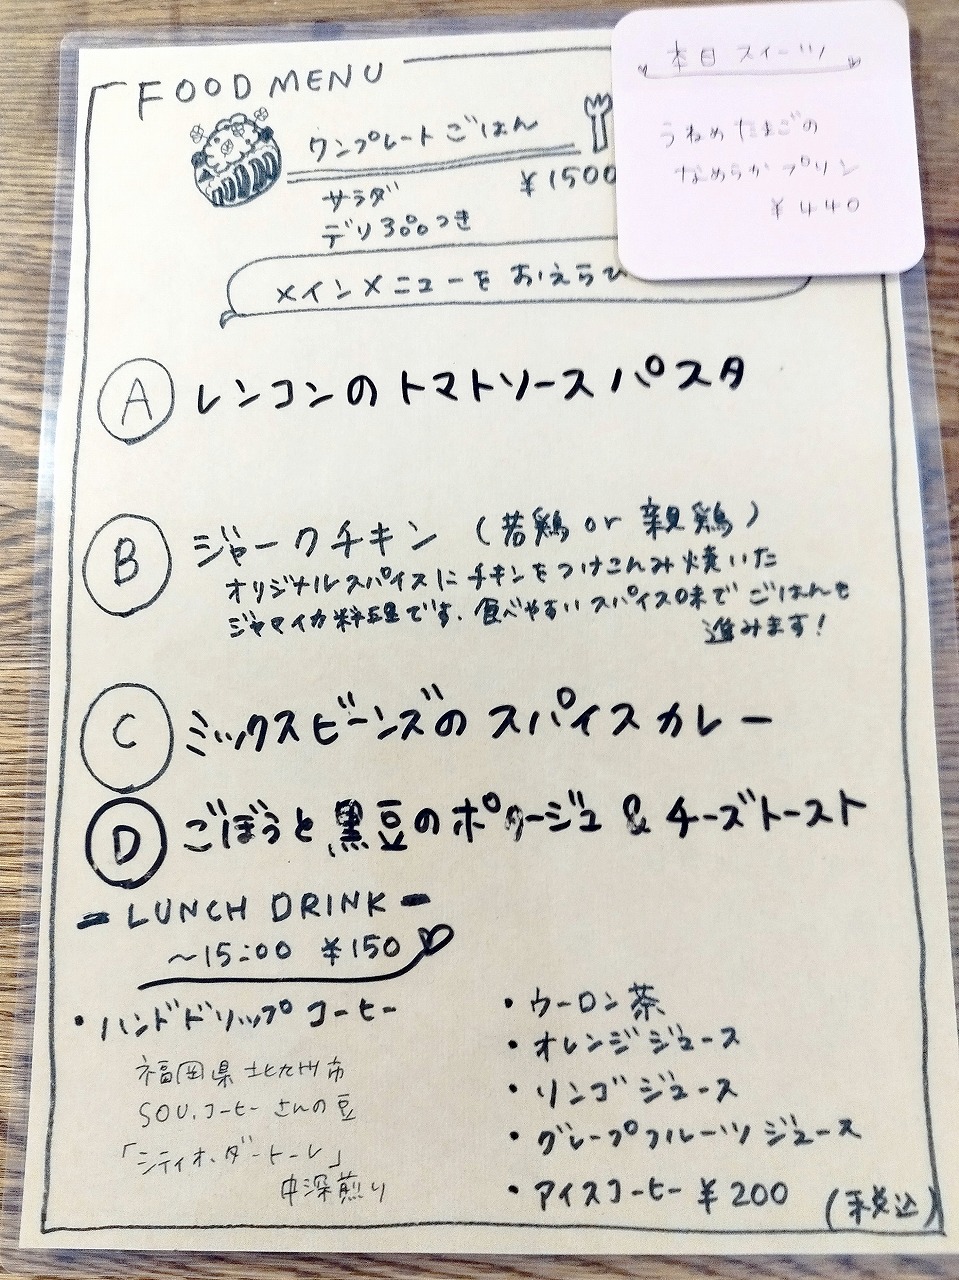 FOOD MENU
ワンプレートごはん
¥1500
サラダ
デリ3つつき
メインメニューをおえらび
本日スイーツ
うねめたまごの
なめらかプリン
¥440
A レンコンのトマトソースパスタ
B ジャークチキン (若鶏 or 親鶏)
オリジナルスパイスにチキンをつけこんみ焼いた
ジャマイカ料理です。食べやすいスパイス味でごはんも
進みます!
C ミックスビーンズのスパイスカレー
D ごぼうと黒豆のポタージュ & チーズトースト
LUNCH DRINK
~15:00 ¥150
・ハンドドリップコーヒー
福岡県北九州市
SOU.コーヒーさんの豆
「シティオ・ダ・トーレ」
中深煎り
・ウーロン茶
・オレンジジュース
・リンゴジュース
・グレープフルーツジュース
・アイスコーヒー ¥200
(税込)